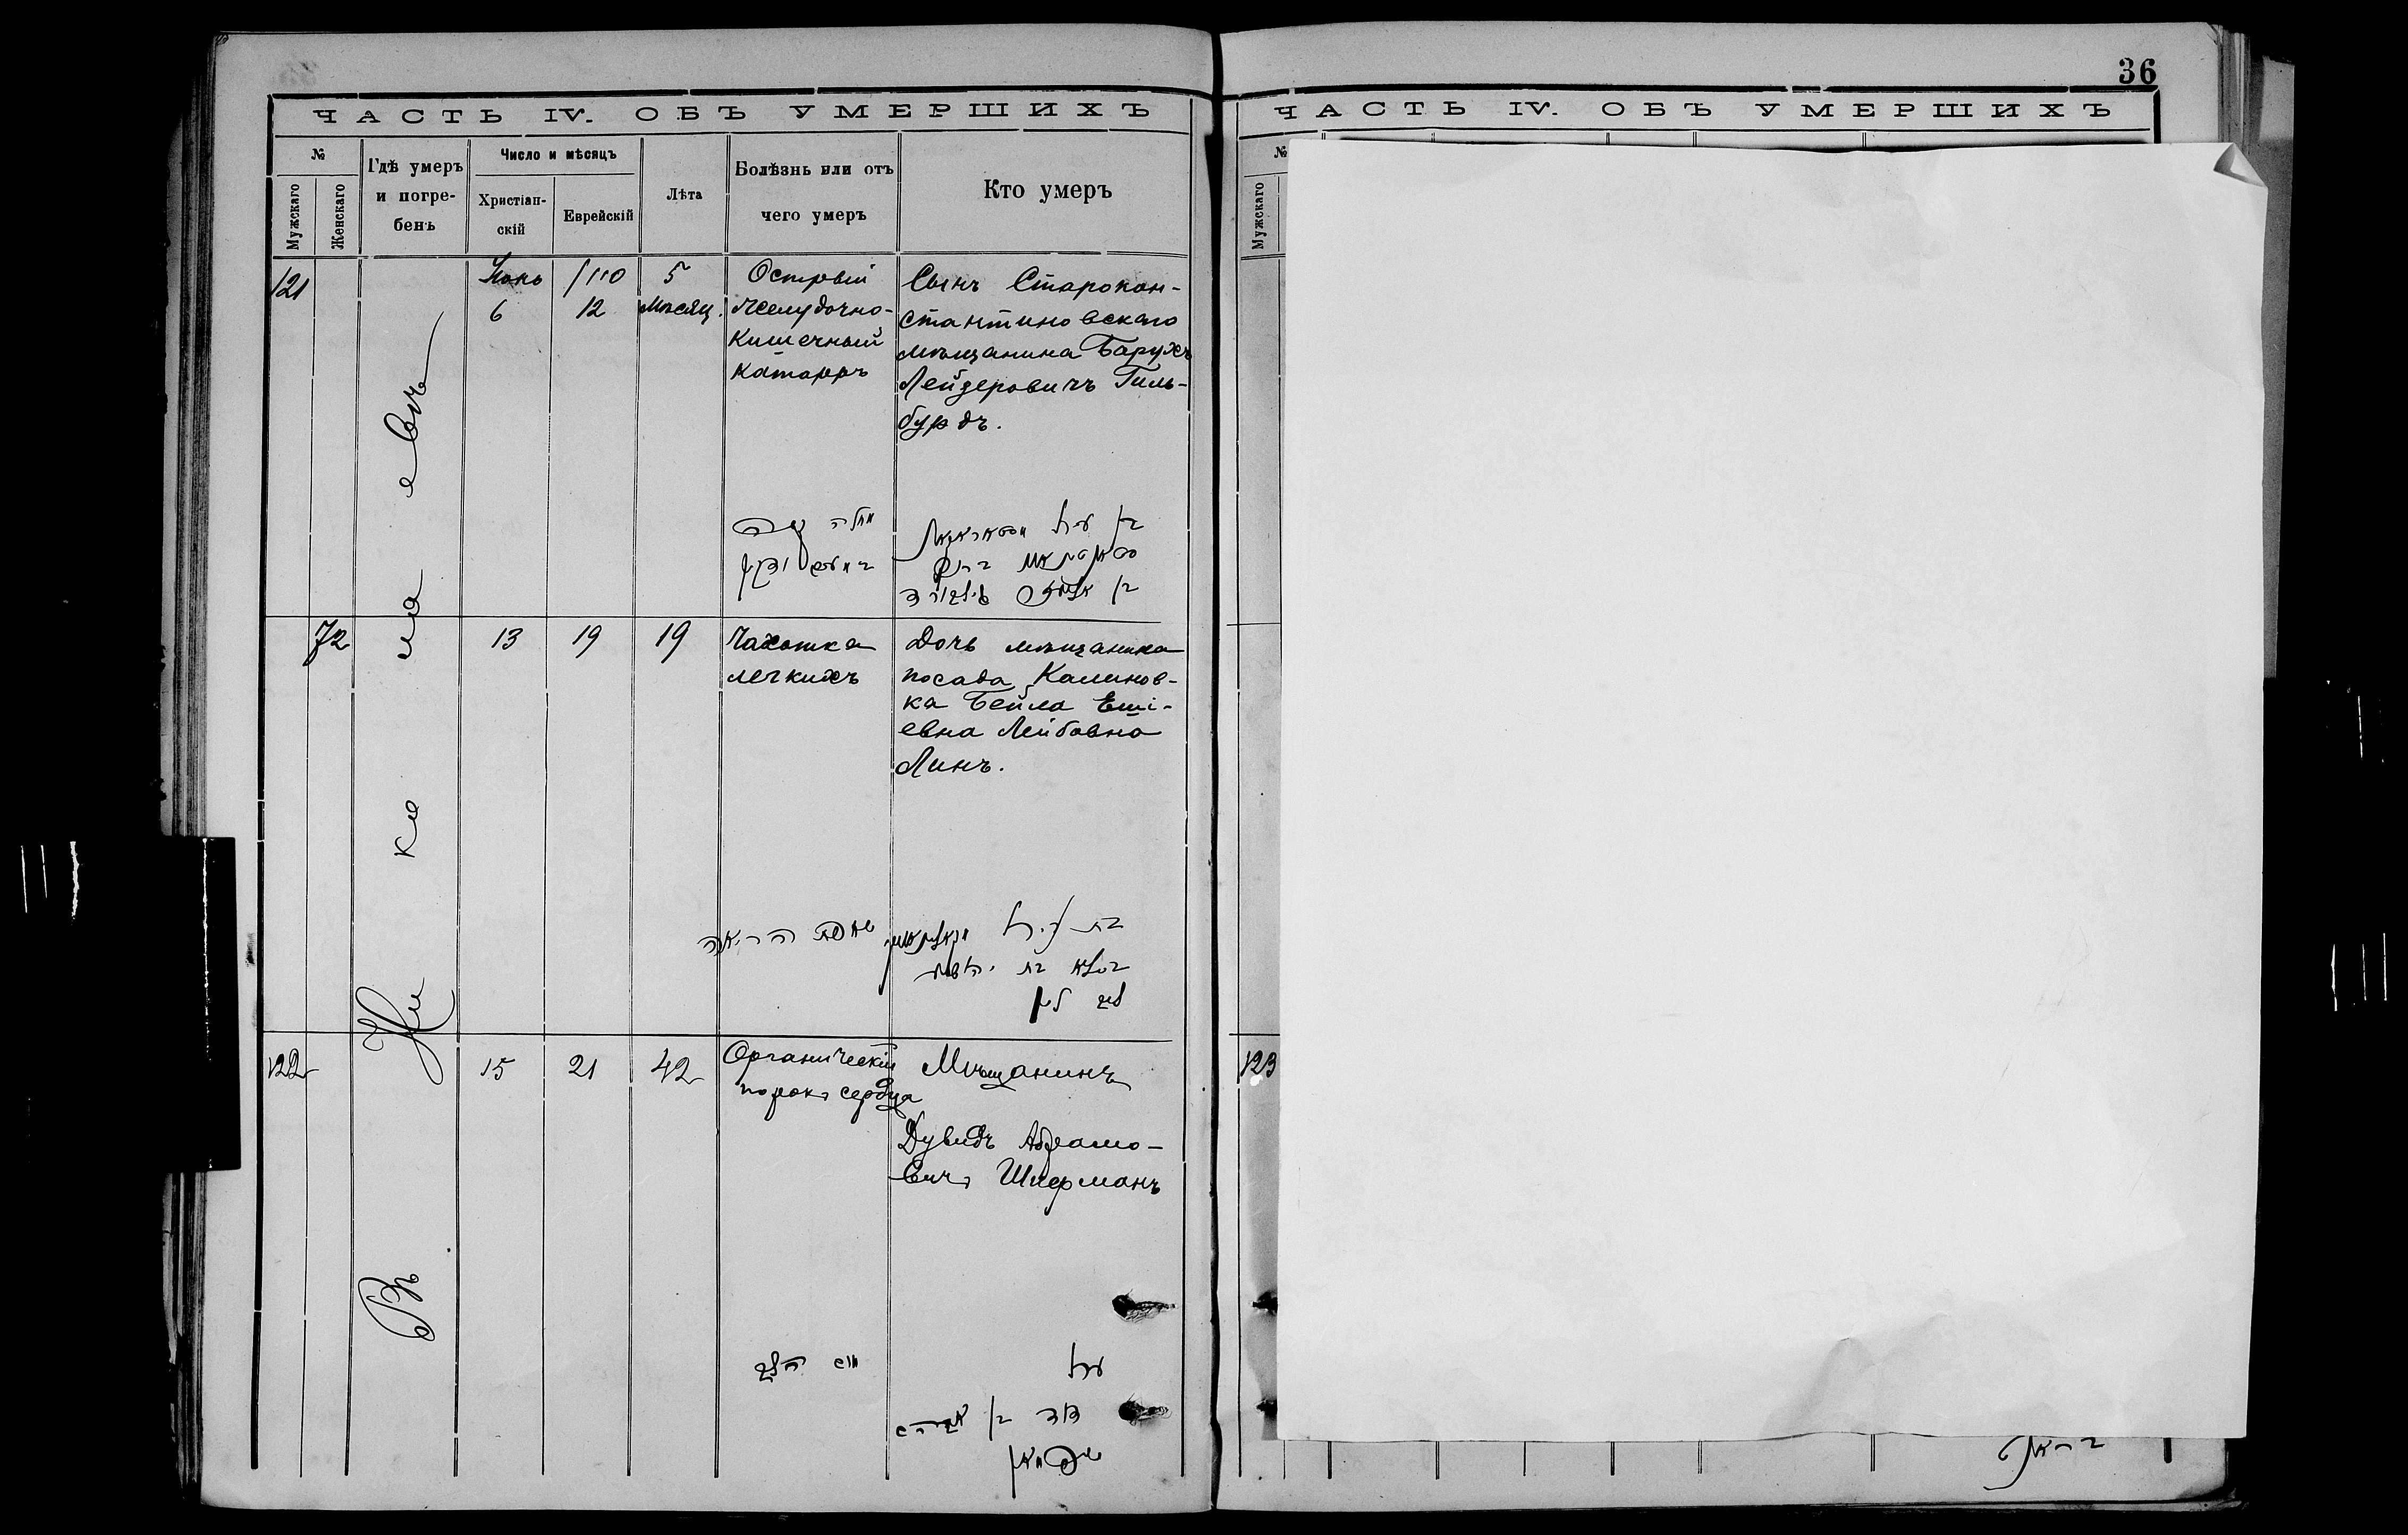 36
ЧАСТЬ IV. ОБЪ УМЕРШИХЪ
№
Мужскаго
Женскаго
Гдѣ умеръ
и погре-
бенъ
Число и мѣсяцъ
Христіан-
скій
Еврейскій
Лѣта
Болѣзнь или отъ
чего умеръ
Кто умеръ
Въ Николаевѣ
121
Іюнь
6
12
5
Мѣсяц.
Острый
желудочно-
кишечный
катарръ
Сынъ Старокон-
стантиновскаго
мѣщанина Барухъ
Лейзеровичъ Гиль-
бурдъ.
בן
ברוך
בן
72
13
19
19
Чахотка
легкихъ
Дочь мѣщанина
посада Калинов-
ка Бейла Еші-
евна Лейбовна
Линъ.
שחפת הריאה
בת
ביילא בת
לייב לין
122
15
21
42
Органическій
порокъ сердца
Мѣщанинъ
Дувидъ Абрамо-
вичъ Шперманъ
מום הלב
דוד בן אברהם
שפערמאן
ЧАСТЬ IV. ОБЪ УМЕРШИХЪ
№
Мужскаго
123